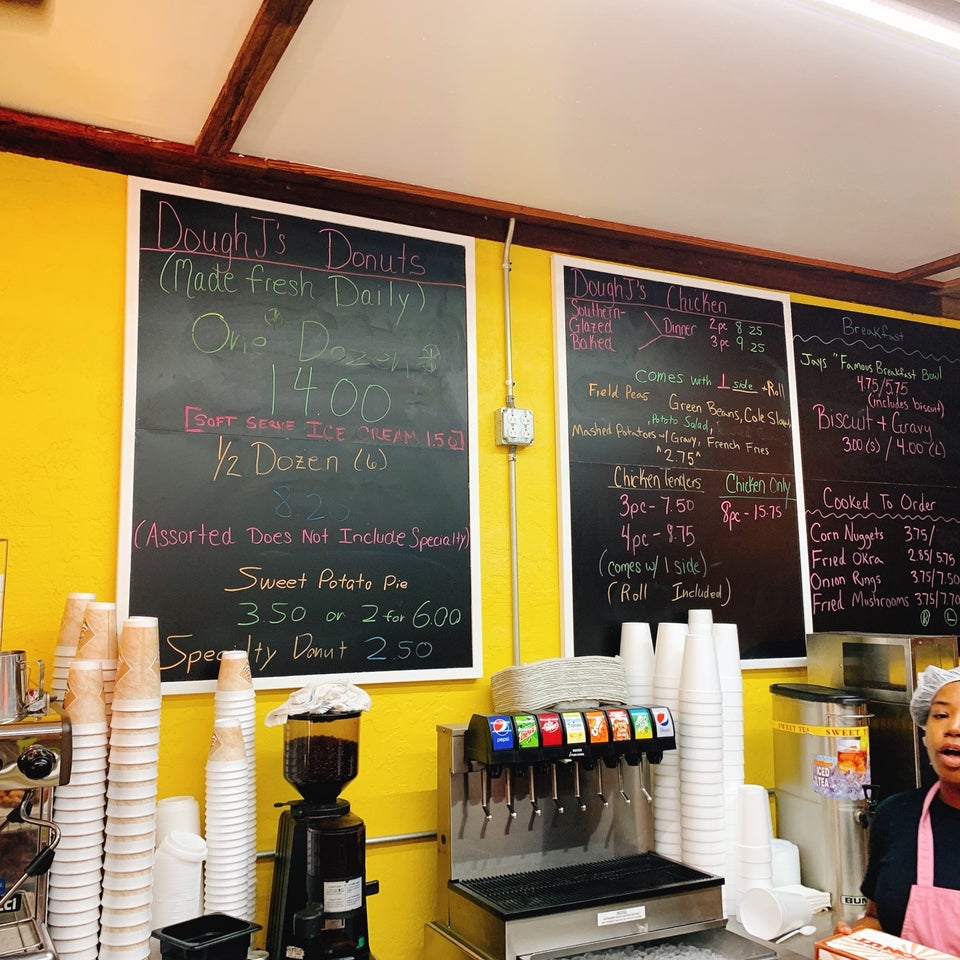 DoughJ's Donuts
(Made fresh Daily)
One Dozen
14.00
[SOFT SERVE ICE CREAM 1.50]
1/2 Dozen (6)
8.25
(Assorted Does Not Include Specialty)
Sweet Potato Pie
3.50 or 2 for 6.00
Specialty Donut 2.50
DoughJ's Chicken
Southern-
Glazed
Baked
Dinner
2pc 8.25
3pc 9.25
comes with 1 side + Roll
Field Peas Green Beans, Cole Slaw,
Potato Salad,
Mashed Potatoes w/ Gravy, French Fries
^2.75^
Chicken Tenders
3pc - 7.50
4pc - 8.75
(comes w/ 1 side)
(Roll Included)
Chicken Only
8pc - 15.75
Breakfast
Jays "Famous Breakfast Bowl
4.75/5.75
(includes biscuit)
Biscuit + Gravy
3.00 (S) / 4.00 (L)
Cooked To Order
Corn Nuggets 3.75/
Fried Okra 2.85/5.75
Onion Rings 3.75/7.50
Fried Mushrooms 3.75/7.70
(R) (L)
pepsi
SWEET TEA
SWEET TEA
ICED
TEA
BUN